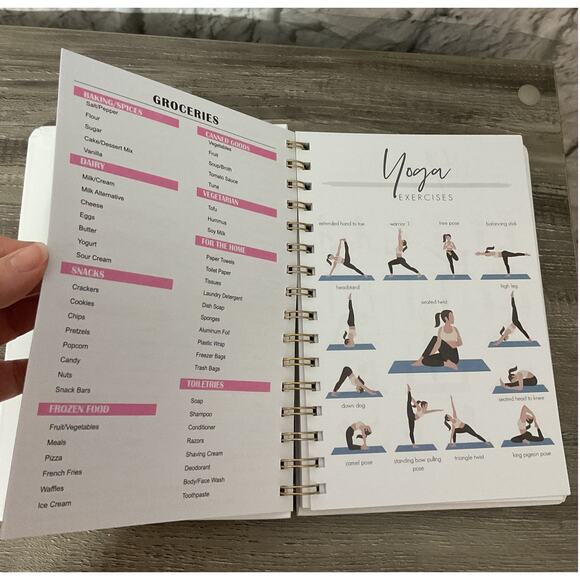 GROCERIES
BAKING/SPICES
Salt/Pepper
Flour
Sugar
Cake/Dessert Mix
Vanilla
DAIRY
Milk/Cream
Milk Alternative
Cheese
Eggs
Butter
Yogurt
Sour Cream
SNACKS
Crackers
Cookies
Chips
Pretzels
Popcorn
Candy
Nuts
Snack Bars
FROZEN FOOD
Fruit/Vegetables
Meals
Pizza
French Fries
Waffles
Ice Cream
CANNED GOODS
Vegetables
Fruit
Soup/Broth
Tomato Sauce
Tuna
VEGETARIAN
Tofu
Hummus
Soy Milk
FOR THE HOME
Paper Towels
Toilet Paper
Tissues
Laundry Detergent
Dish Soap
Sponges
Aluminum Foil
Plastic Wrap
Freezer Bags
Trash Bags
TOILETRIES
Soap
Shampoo
Conditioner
Razors
Shaving Cream
Deodorant
Body/Face Wash
Toothpaste
Yoga
EXERCISES
extended hand to toe
warrior 1
tree pose
balancing stick
headstand
seated twist
high leg
down dog
seated head to knee
camel pose
standing bow pulling
pose
triangle twist
king pigeon pose